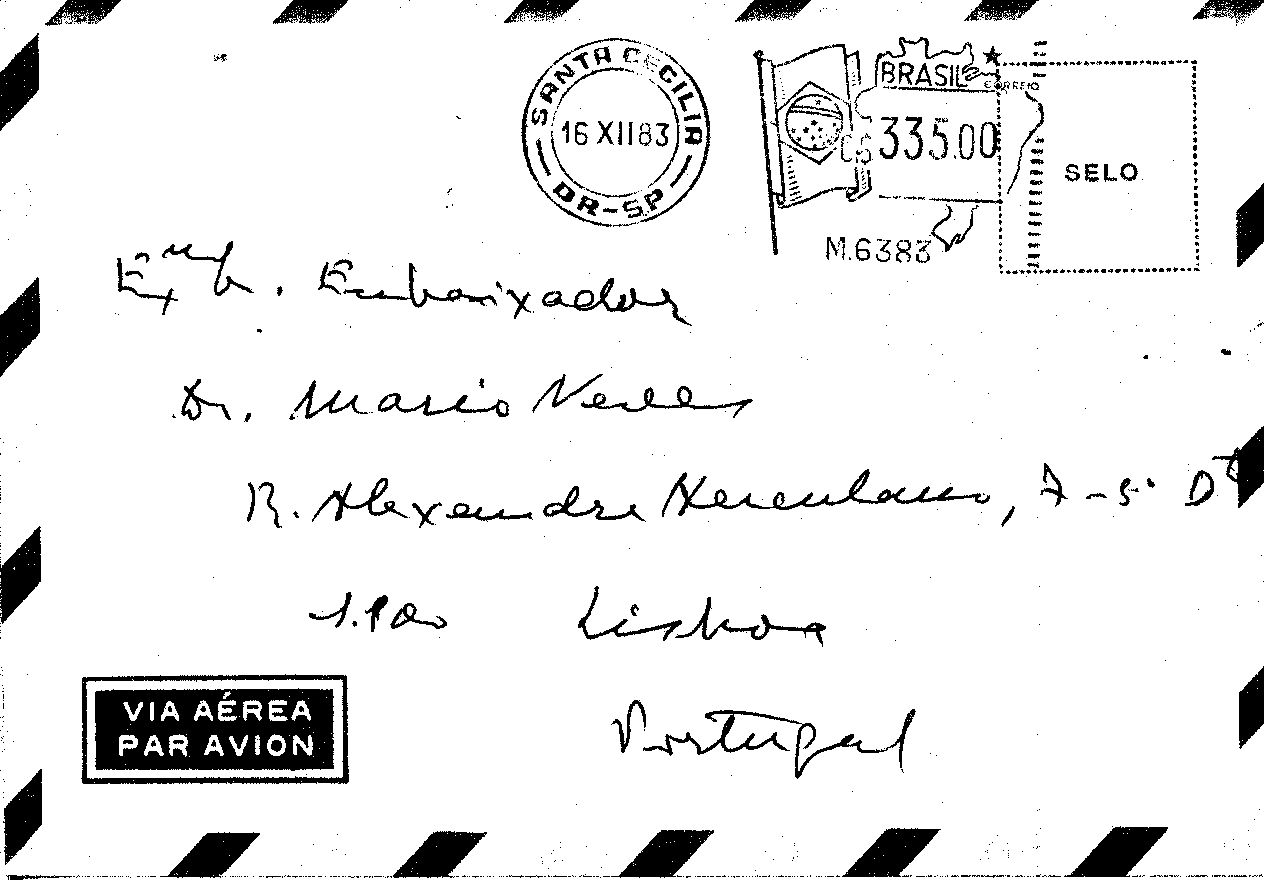 SANTA CECILIA
16 XII 83
DR-SP
BRASIL
CORREIO
C$ 335.00
M.6383
SELO
Exmo. Embaixador
Dr. Mario Neves
R. Alexandre Herculano, 7-5º Dto
Lisboa
Portugal
VIA AÉREA
PAR AVION